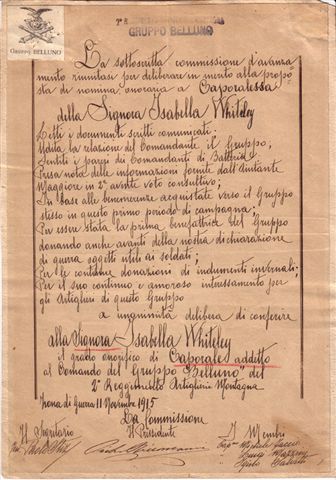 Gruppo BELLUNO
GRUPPO BELLUNO
La sottoscritta commissione d'avanza
mento riunitasi per deliberare in merito alla propo
sta di nomina onoraria a Caporalessa
della Signora Isabella Whiteley
Letti i documenti scritti comunicati:
Udita la relazione del Comandante il Gruppo;
Sentiti i pareri dei Comandanti di Batteria;
Presa nota delle informazioni fornite dall'Aiutante
Maggiore in 2ª avente voto consultivo;
In base alle benemerenze acquistate verso il Gruppo
stesso in questo primo periodo di campagna:
Per essere stata la prima benefattrice del Gruppo
donando anche avanti della nostra dichiarazione
di guerra oggetti utili ai soldati;
Per le continue donazioni di indumenti invernali;
Per il suo continuo e amoroso interessamento per
gli Artiglieri di questo Gruppo
a unanimità delibera di conferire
alla Signora Isabella Whiteley
il grado onorifico di Caporale addetto
al Comando del Gruppo "Belluno" del
2º Reggimento Artiglieria Montagna
Zona di Guerra 11 Novembre 1915
La Commissione
Il Segretario
Il Presidente
I Membri